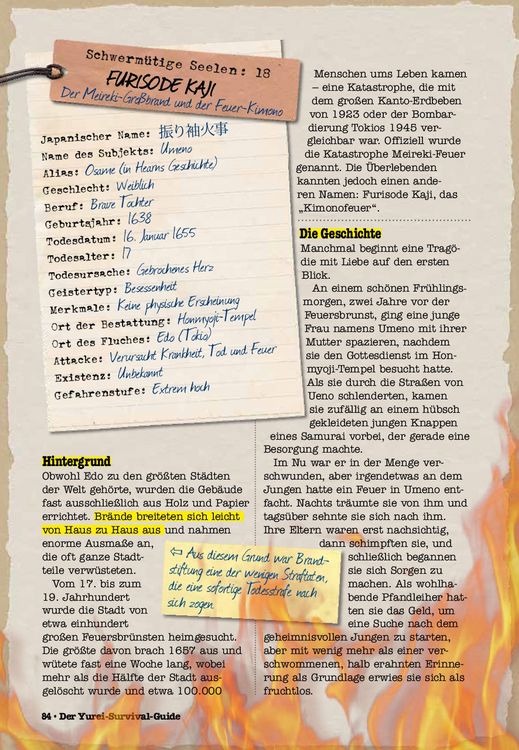 Schwermütige Seelen: 18
FURISODE KAJI
Der Meireki-Großbrand und der Feuer-Kimono
Japanischer Name: 振り袖火事
Name des Subjekts: Umeno
Alias: Osame (in Hearns Geschichte)
Geschlecht: Weiblich
Beruf: Brave Tochter
Geburtsjahr: 1638
Todesdatum: 16. Januar 1655
Todesalter: 17
Todesursache: Gebrochenes Herz
Geistertyp: Besessenheit
Merkmale: Keine physische Erscheinung
Ort der Bestattung: Honmyoji-Tempel
Ort des Fluches: Edo (Tokio)
Attacke: Verursacht Krankheit, Tod und Feuer
Existenz: Unbekannt
Gefahrenstufe: Extrem hoch
Hintergrund
Obwohl Edo zu den größten Städten
der Welt gehörte, wurden die Gebäude
fast ausschließlich aus Holz und Papier
errichtet. Brände breiteten sich leicht
von Haus zu Haus aus und nahmen
enorme Ausmaße an,
die oft ganze Stadt-
teile verwüsteten.
Vom 17. bis zum
19. Jahrhundert
wurde die Stadt von
etwa einhundert
großen Feuersbrünsten heimgesucht.
Die größte davon brach 1657 aus und
wütete fast eine Woche lang, wobei
mehr als die Hälfte der Stadt aus-
gelöscht wurde und etwa 100.000
⇦ Aus diesem Grund war Brand-
stiftung eine der wenigen Straftaten,
die eine sofortige Todesstrafe nach
sich zogen.
Menschen ums Leben kamen
– eine Katastrophe, die mit
dem großen Kanto-Erdbeben
von 1923 oder der Bombar-
dierung Tokios 1945 ver-
gleichbar war. Offiziell wurde
die Katastrophe Meireki-Feuer
genannt. Die Überlebenden
kannten jedoch einen ande-
ren Namen: Furisode Kaji, das
„Kimonofeuer“.
Die Geschichte
Manchmal beginnt eine Tragö-
die mit Liebe auf den ersten
Blick.
An einem schönen Frühlings-
morgen, zwei Jahre vor der
Feuersbrunst, ging eine junge
Frau namens Umeno mit ihrer
Mutter spazieren, nachdem
sie den Gottesdienst im Hon-
myoji-Tempel besucht hatte.
Als sie durch die Straßen von
Ueno schlenderten, kamen
sie zufällig an einem hübsch
gekleideten jungen Knappen
eines Samurai vorbei, der gerade eine
Besorgung machte.
Im Nu war er in der Menge ver-
schwunden, aber irgendetwas an dem
Jungen hatte ein Feuer in Umeno ent-
facht. Nachts träumte sie von ihm und
tagsüber sehnte sie sich nach ihm.
Ihre Eltern waren erst nachsichtig,
dann schimpften sie, und
schließlich begannen
sie sich Sorgen zu
machen. Als wohlha-
bende Pfandleiher hat-
ten sie das Geld, um
eine Suche nach dem
geheimnisvollen Jungen zu starten,
aber mit wenig mehr als einer ver-
schwommenen, halb erahnten Erinne-
rung als Grundlage erwies sie sich als
fruchtlos.
84 • Der Yurei-Survival-Guide